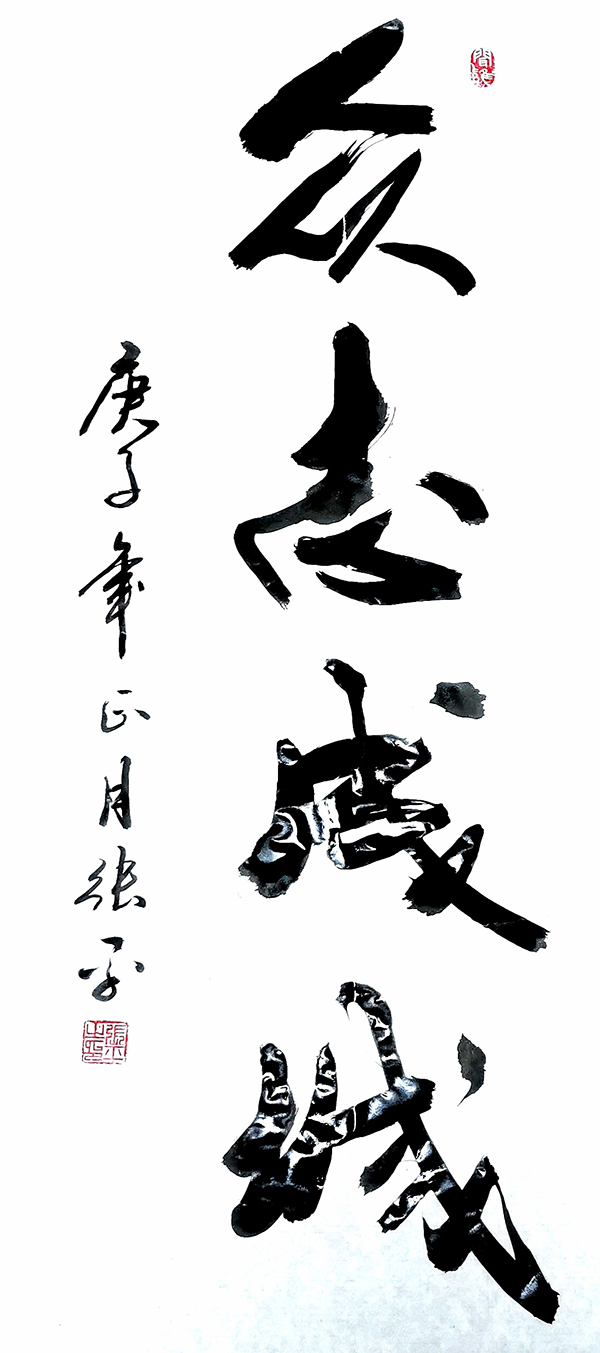 众志成城
庚子年正月张平